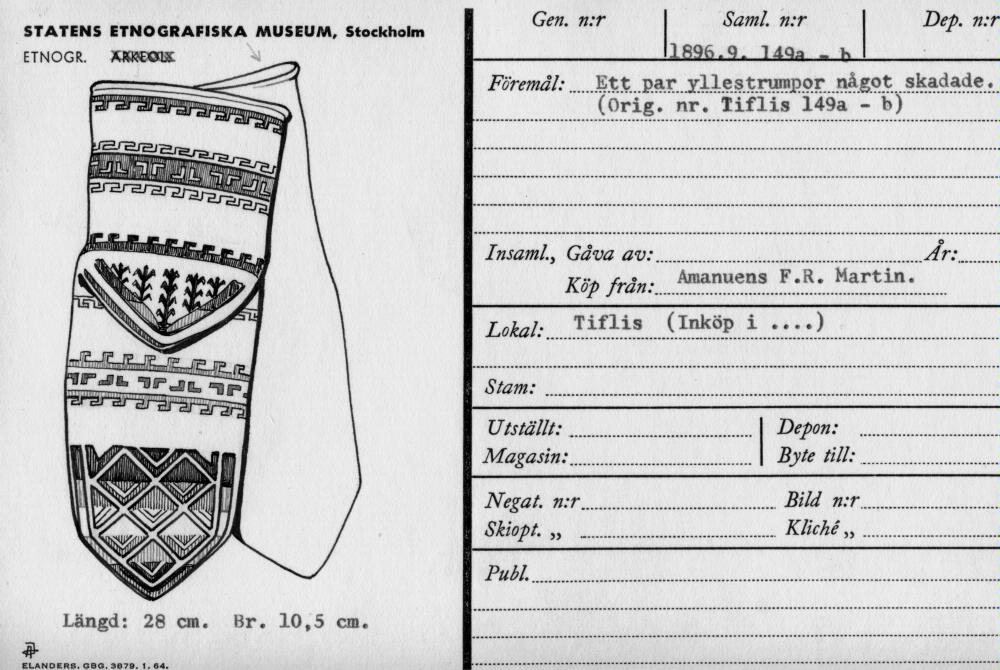 STATENS ETNOGRAFISKA MUSEUM, Stockholm
ETNOGR. ARKEOL.
Längd: 28 cm. Br. 10,5 cm.
ELANDERS. GBG. 3679. 1. 64.
Gen. n:r Saml. n:r Dep. n:r
1896.9. 149a - b
Föremål: Ett par yllestrumpor något skadade.
(Orig. nr. Tiflis 149a - b)
Insaml., Gåva av: År:
Köp från: Amanuens F.R. Martin.
Lokal: Tiflis (Inköp i ....)
Stam:
Utställt: Depon:
Magasin: Byte till:
Negat. n:r Bild n:r
Skiopt. „ Kliché „
Publ.